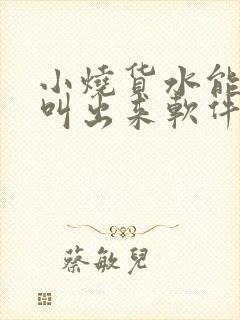 小燒货水能
叫出来軟件
蔡敏兒